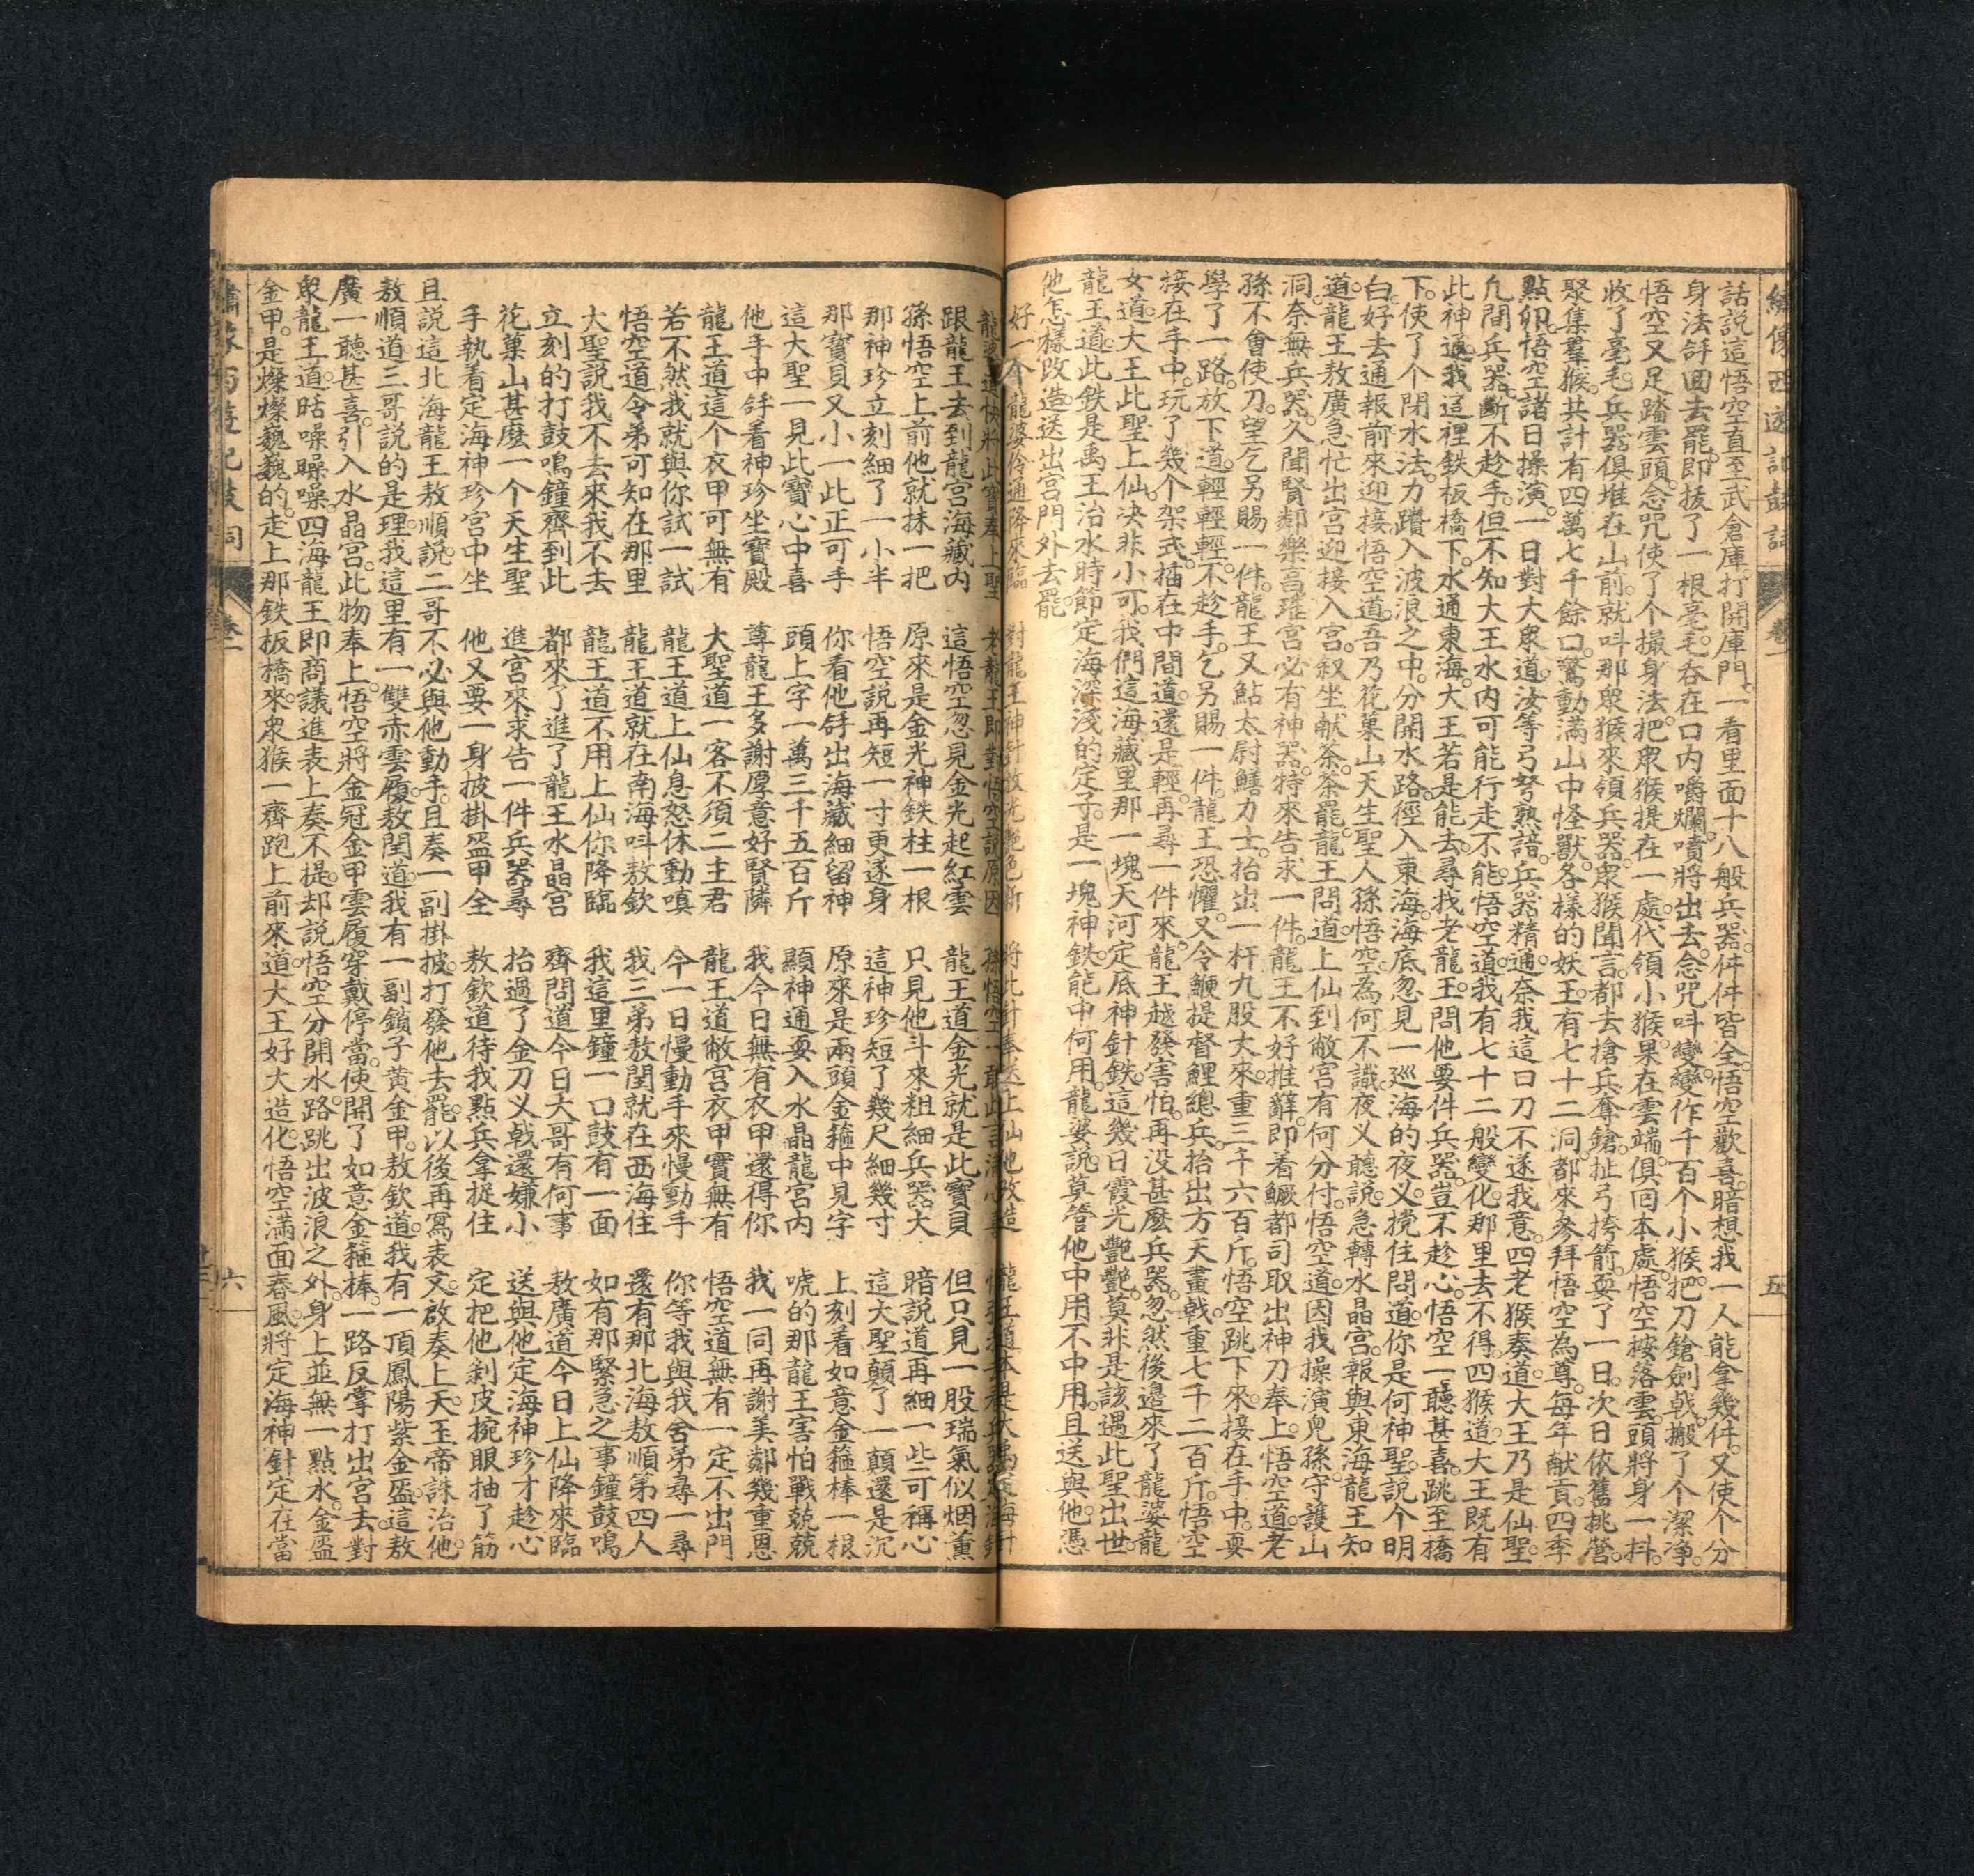 繡像西遊記鼓詞
卷一
五
話說這悟空直至武倉庫打開庫門。一看里面十八般兵器。件件皆全。悟空歡喜。暗想我一人能拿幾件。又使个分
身法弄回去罷。即拔了一根毫毛。吞在口内嚼爛。噴將出去。念咒呌變。變作千百个小猴。把刀鎗劍戟。搬了个潔净。
悟空又足踏雲頭。念咒使了个撮身法。把衆猴提在一處。代領小猴。果在雲端。俱囘本處。悟空按落雲頭。將身一抖。
收了毫毛。兵器俱堆在山前。就呌那衆猴來領兵器。衆猴聞言。都去搶兵奪鎗。扯弓挎箭。耍了一日。次日依舊挑營。
聚集羣猴。共計有四萬七千餘口。驚動滿山中怪獸。各樣的妖王。有七十二洞。都來參拜悟空為尊。每年献貢。四季
點卯。悟空諸日操演。一日對大衆道。汝等弓弩熟諳。兵器精通。奈我這口刀不遂我意。四老猴奏道。大王乃是仙聖
凢間兵器。斷不趁手。但不知大王水内可能行走不能。悟空道。我有七十二般變化。那里去不得。四猴道。大王既有
此神通。我這裡鉄板橋下。水通東海。大王若是能去。尋找老龍王。問他要件兵器。豈不趁心。悟空一聽甚喜。跳至橋
下。使了个閉水法。力躦入波浪之中。分開水路。徑入東海。海底忽見一巡海的夜义。撓住問道。你是何神聖。說个明
白。好去通報。前來迎接。悟空道。吾乃花菓山天生聖人孫悟空。為何不識。夜义聽說。急轉水晶宮。報與東海龍王知
道。龍王敖廣急忙出宮迎接入宮。叙坐献茶。茶罷。龍王問道。上仙到敝宮有何分付。悟空道。因我操演兒孫。守護山
洞。奈無兵器。久聞賢鄰樂享瑤宮。必有神器。特來告求一件。龍王不好推辭。即着鱖都司取出神刀奉上。悟空道。老
孫不會使刀。望乞另賜一件。龍王又鮎太尉鱔力士。抬出一杆九股大來。重三千六百斤。悟空跳下來。接在手中。耍
學了一路。放下道。輕輕輕。不趁手。乞另賜一件。龍王恐懼。又令鯾提督鯉總兵。抬出方天畫戟。重七千二百斤。悟空
接在手中。玩了幾个架式。揷在中間道。還是輕。再尋一件來。龍王越發害怕。再没甚麽兵器。忽然後邉來了龍婆龍
女道。大王此聖上仙。决非小可。我們這海藏里那一塊天河定底神針鉄。這幾日霞光艷艷。莫非是該遇此聖出世。
龍王道。此鉄是禹王治水時節。定海深淺的定子。是一塊神鉄。能中何用。龍婆說。莫管他中用不中用。且送與他。憑
他怎樣改造。送出宮門外去罷。
好一个龍婆伶通降來臨　對龍王神針放光艷色新　將此針奉送上仙他改造
老龍王即對悟空說原因
跟龍王去到龍宮海藏内　這悟空忽見金光起紅雲　龍王道金光就是此寳貝　但只見一股瑞氣似烟薰
孫悟空上前他就抹一把　原來是金光神鉄柱一根　只見他斗來粗細兵器大　暗說道再細一些可稱心
那神珍立刻細了一小半　悟空說再短一寸更遂身　這神珍短了幾尺細幾寸　這大聖顛了一顛還是沉
那寳貝又小一此正可手　你看他舒出海藏細留神　原來是兩頭金箍中見字　上刻着如意金箍棒一根
這大聖一見此寳心中喜　頭上字一萬三千五百斤　顯神通耍入水晶龍宮内　唬的那龍王害怕戰兢兢
他手中舒着神珍坐寳殿　尊龍王多謝厚意好賢隣　我今日無有衣甲還得你　我一同再謝美鄰幾重恩
龍王道這个衣甲可無有　大聖道一客不須二主君　龍王道敝宮衣甲實無有　悟空道無有一定不出門
若不然我就與你試一試　龍王道上仙息怒休動嗔　今一日慢動手來慢動手　你等我與我舍弟尋一尋
悟空道令弟可知在那里　龍王道就在南海呌敖欽　我三弟敖閏就在西海住　還有那北海敖順第四人
大聖說我不去來我不去　龍王道不用上仙你降臨　我這里鐘一口鼓有一面　如有那緊急之事鐘鼓鳴
立刻的打鼓鳴鐘齊到此　都來了進了龍王水晶宮　齊問道今日大哥有何事　敖廣道今日上仙降來臨
花菓山甚麽一个天生聖　進宮來求告一件兵器尋　抬過了金刀义戟還嫌小　送與他定海神珍才趁心
手執着定海神珍宮中坐　他又要一身披掛盔甲全　敖欽道待我點兵拿捉住　定把他剝皮捥眼抽了筋
且說這北海龍王敖順說。二哥不必與他動手。且奏一副掛披。打發他去罷。以後再寫表文。啟奏上天。玉帝誅治他。
敖順道。三哥說的是理。我這里有一雙赤雲履。敖閏道。我有一副鎖子黄金甲。敖欽道。我有一頂鳳陽紫金盔。這敖
廣一聽甚喜。引入水晶宮。此物奉上。悟空將金冠金甲雲履穿戴停當。使開了如意金箍棒。一路反掌打出宮去。對
衆龍王道。聒噪聒噪。四海龍王即商議進表上奏不提。却說悟空分開水路。跳出波浪之外。身上並無一點水。金盔
金甲。是燦燦巍巍的。走上那鉄板橋來。衆猴一齊跑上前來道。大王好大造化。悟空滿面春風。將定海神針定在當
繡像西遊記鼓詞
卷一
六